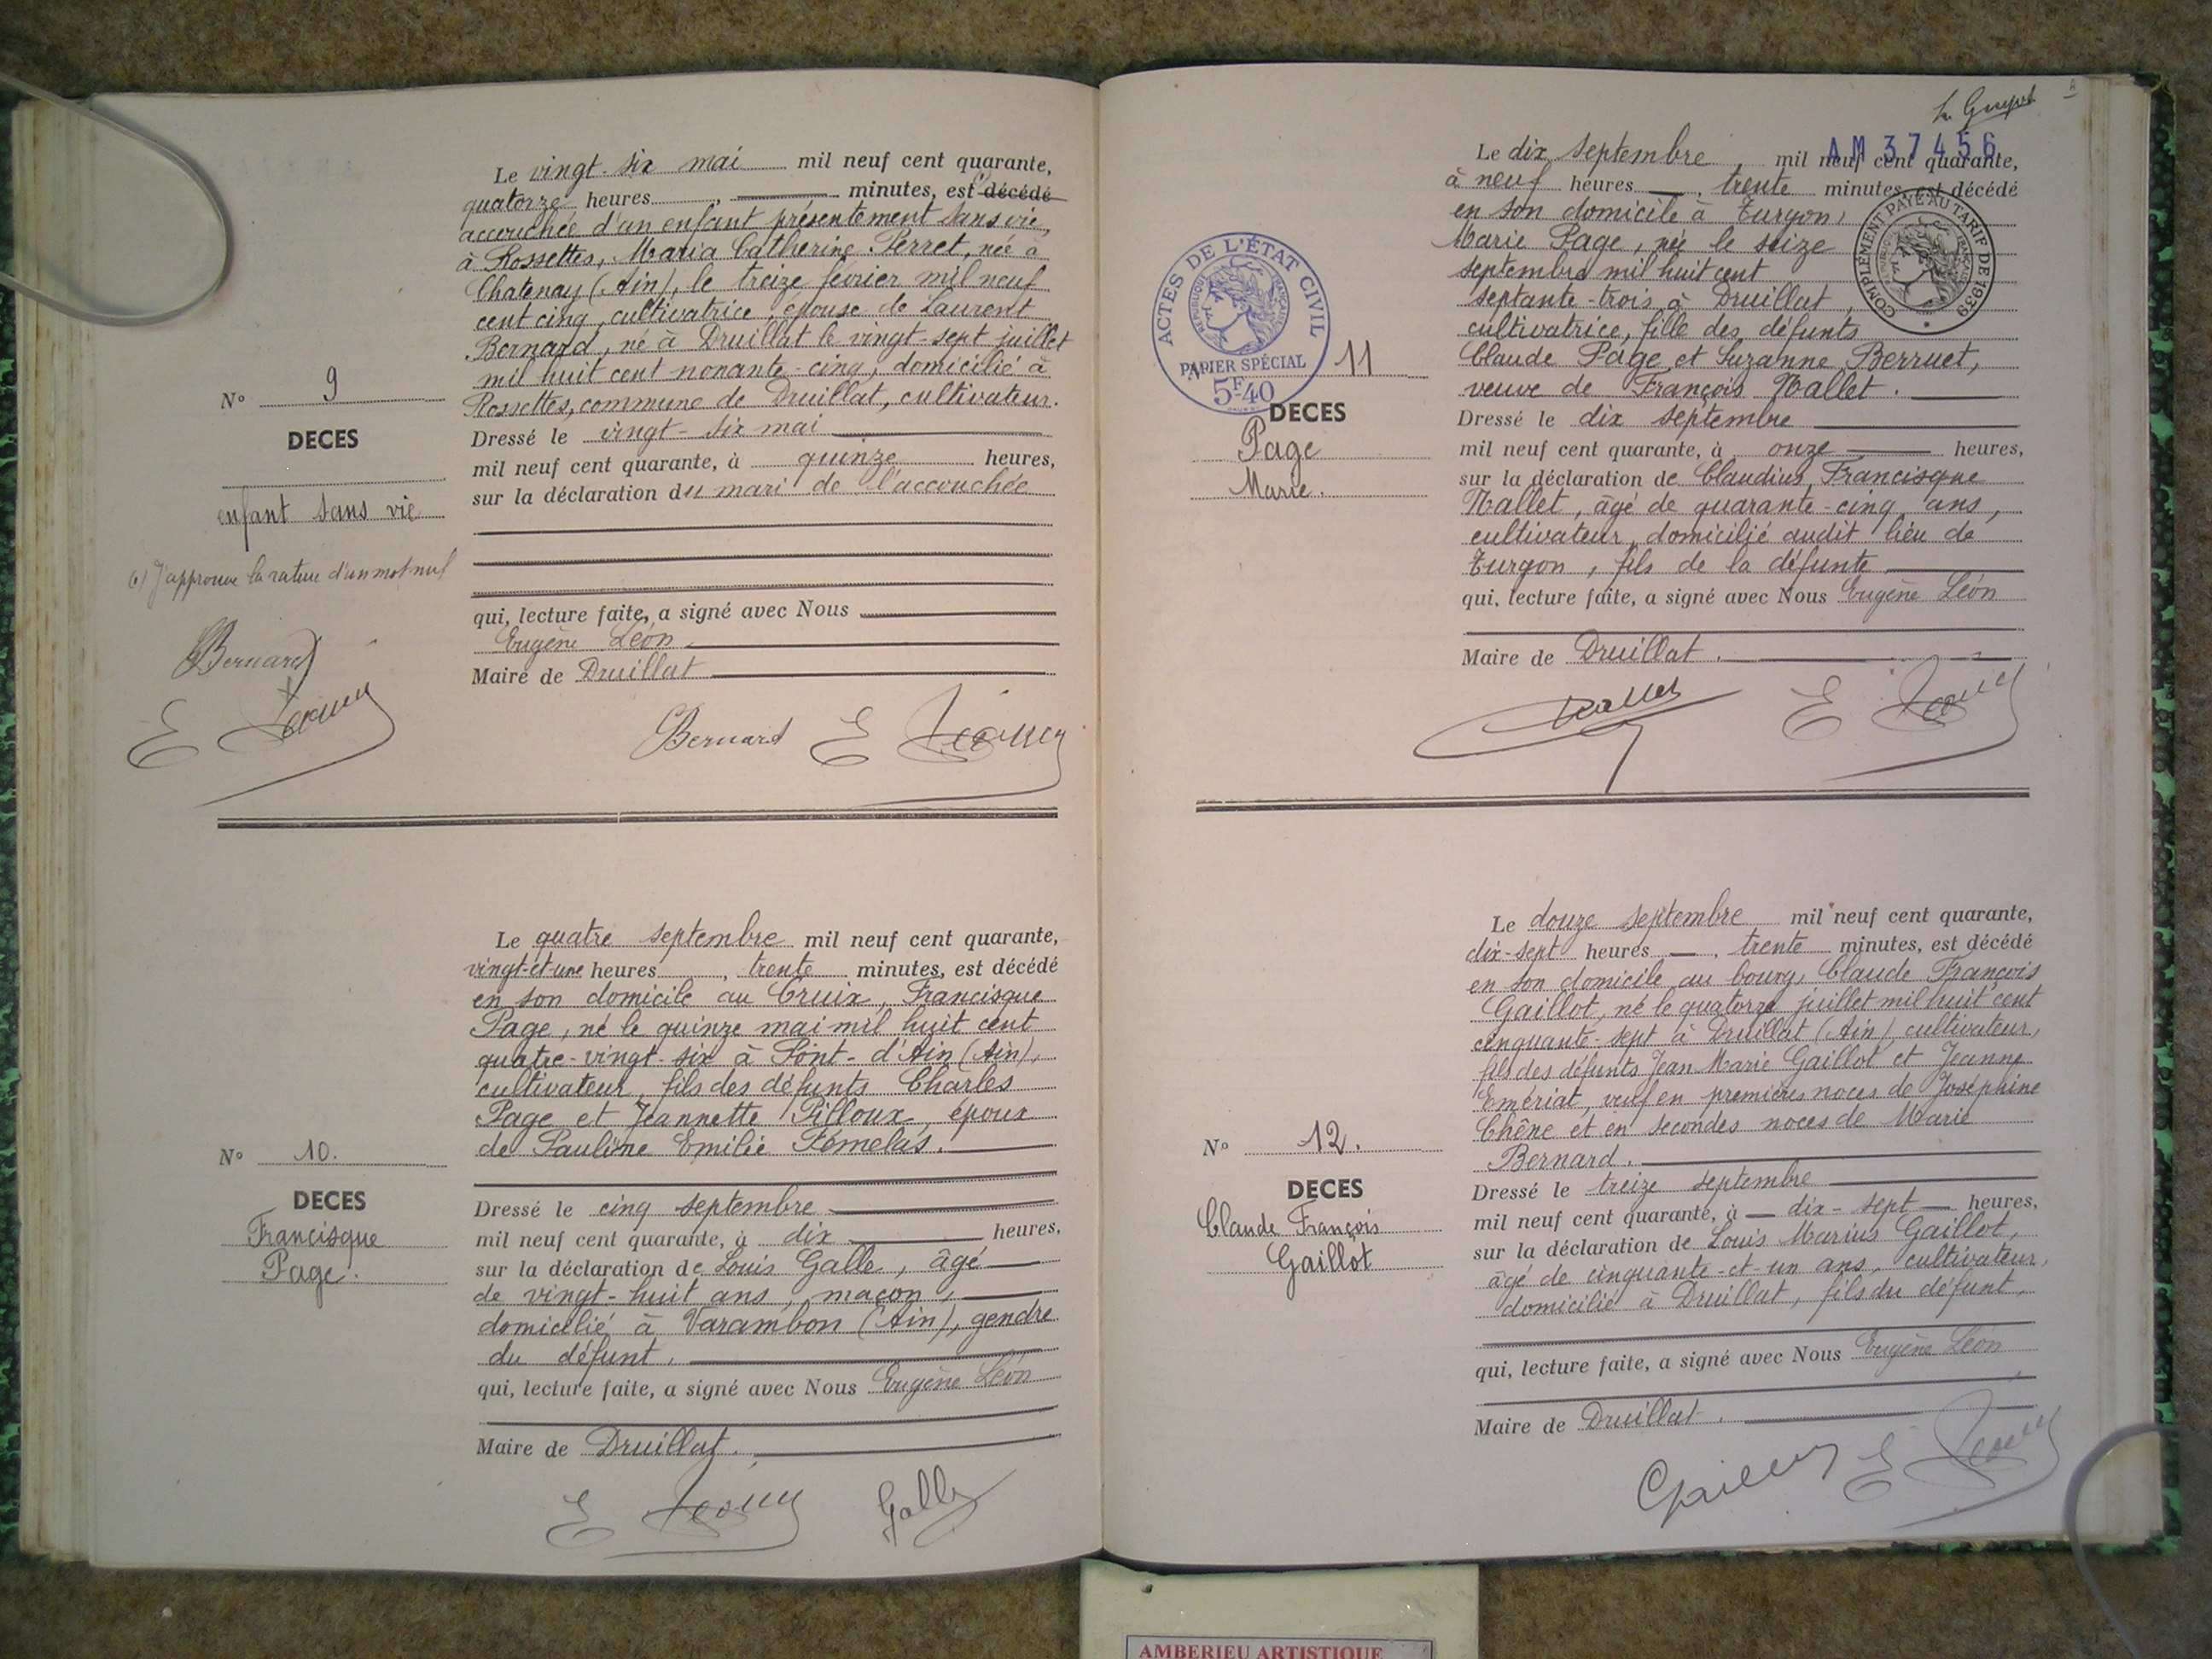 Le vingt-six mai mil neuf cent quarante,
quatorze heures, minutes, est (1) décédé
accouchée d'un enfant présentement sans vie,
à Rossettes, Maria Catherine Perret, née à
Chatenay (Ain), le treize février mil neuf
cent cinq, cultivatrice, épouse de Laurent
Bernard, né à Druillat le vingt-sept juillet
mil huit cent nonante-cinq, domicilié à
Rossettes, commune de Druillat, cultivateur.
N° 9
DECES
enfant sans vie
Dressé le vingt-six mai
mil neuf cent quarante, à quinze heures,
sur la déclaration du mari de l'accouchée
(1) J'approuve la rature d'un mot nul
qui, lecture faite, a signé avec Nous
Eugène Léon
Maire de Druillat
Bernard
Bernard E
Le quatre septembre mil neuf cent quarante,
vingt-et-une heures, trente minutes, est décédé
en son domicile au Cruix, Francisque
Page, né le quinze mai mil huit cent
quatre-vingt-six à Pont-d'Ain (Ain),
cultivateur, fils des défunts Charles
Page et Jeannette Pilloux, époux
de Pauline Emilie Fémelas.
N° 10.
DECES
Francisque
Page.
Dressé le cinq septembre
mil neuf cent quarante, à dix heures,
sur la déclaration de Louis Galle, âgé
de vingt-huit ans, maçon,
domicilié à Varambon (Ain), gendre
du défunt.
qui, lecture faite, a signé avec Nous Eugène Léon
Maire de Druillat.
E Galle
AM 37456
Le dix septembre, mil neuf cent quarante,
à neuf heures, trente minutes, est décédé
en son domicile à Turgon,
Marie Page, née le seize
septembre mil huit cent
septante-trois à Druillat,
cultivatrice, fille des défunts
Claude Page et Suzanne Berruet,
veuve de François Nallet.
COMPLÉMENT PAYÉ AU TARIF DE 1939
ACTES DE L'ÉTAT CIVIL
RÉPUBLIQUE FRANÇAISE
PAPIER SPÉCIAL
5F40
11
DECES
Page
Marie.
Dressé le dix septembre
mil neuf cent quarante, à onze heures,
sur la déclaration de Claudius Francisque
Nallet, âgé de quarante-cinq ans,
cultivateur, domicilié audit lieu de
Turgon, fils de la défunte
qui, lecture faite, a signé avec Nous Eugène Léon
Maire de Druillat.
Nallet E
Le douze septembre mil neuf cent quarante,
dix-sept heures, trente minutes, est décédé
en son domicile au bourg, Claude François
Gaillot, né le quatorze juillet mil huit cent
cinquante-sept à Druillat (Ain), cultivateur,
fils des défunts Jean Marie Gaillot et Jeanne
Emeriat, veuf en premières noces de Joséphine
Chêne et en secondes noces de Marie
Bernard.
N° 12.
DECES
Claude François
Gaillot
Dressé le treize septembre
mil neuf cent quarante, à dix-sept heures,
sur la déclaration de Louis Marius Gaillot,
âgé de cinquante-et-un ans, cultivateur,
domicilié à Druillat, fils du défunt,
qui, lecture faite, a signé avec Nous Eugène Léon
Maire de Druillat.
E
AMBERIEU ARTISTIQUE